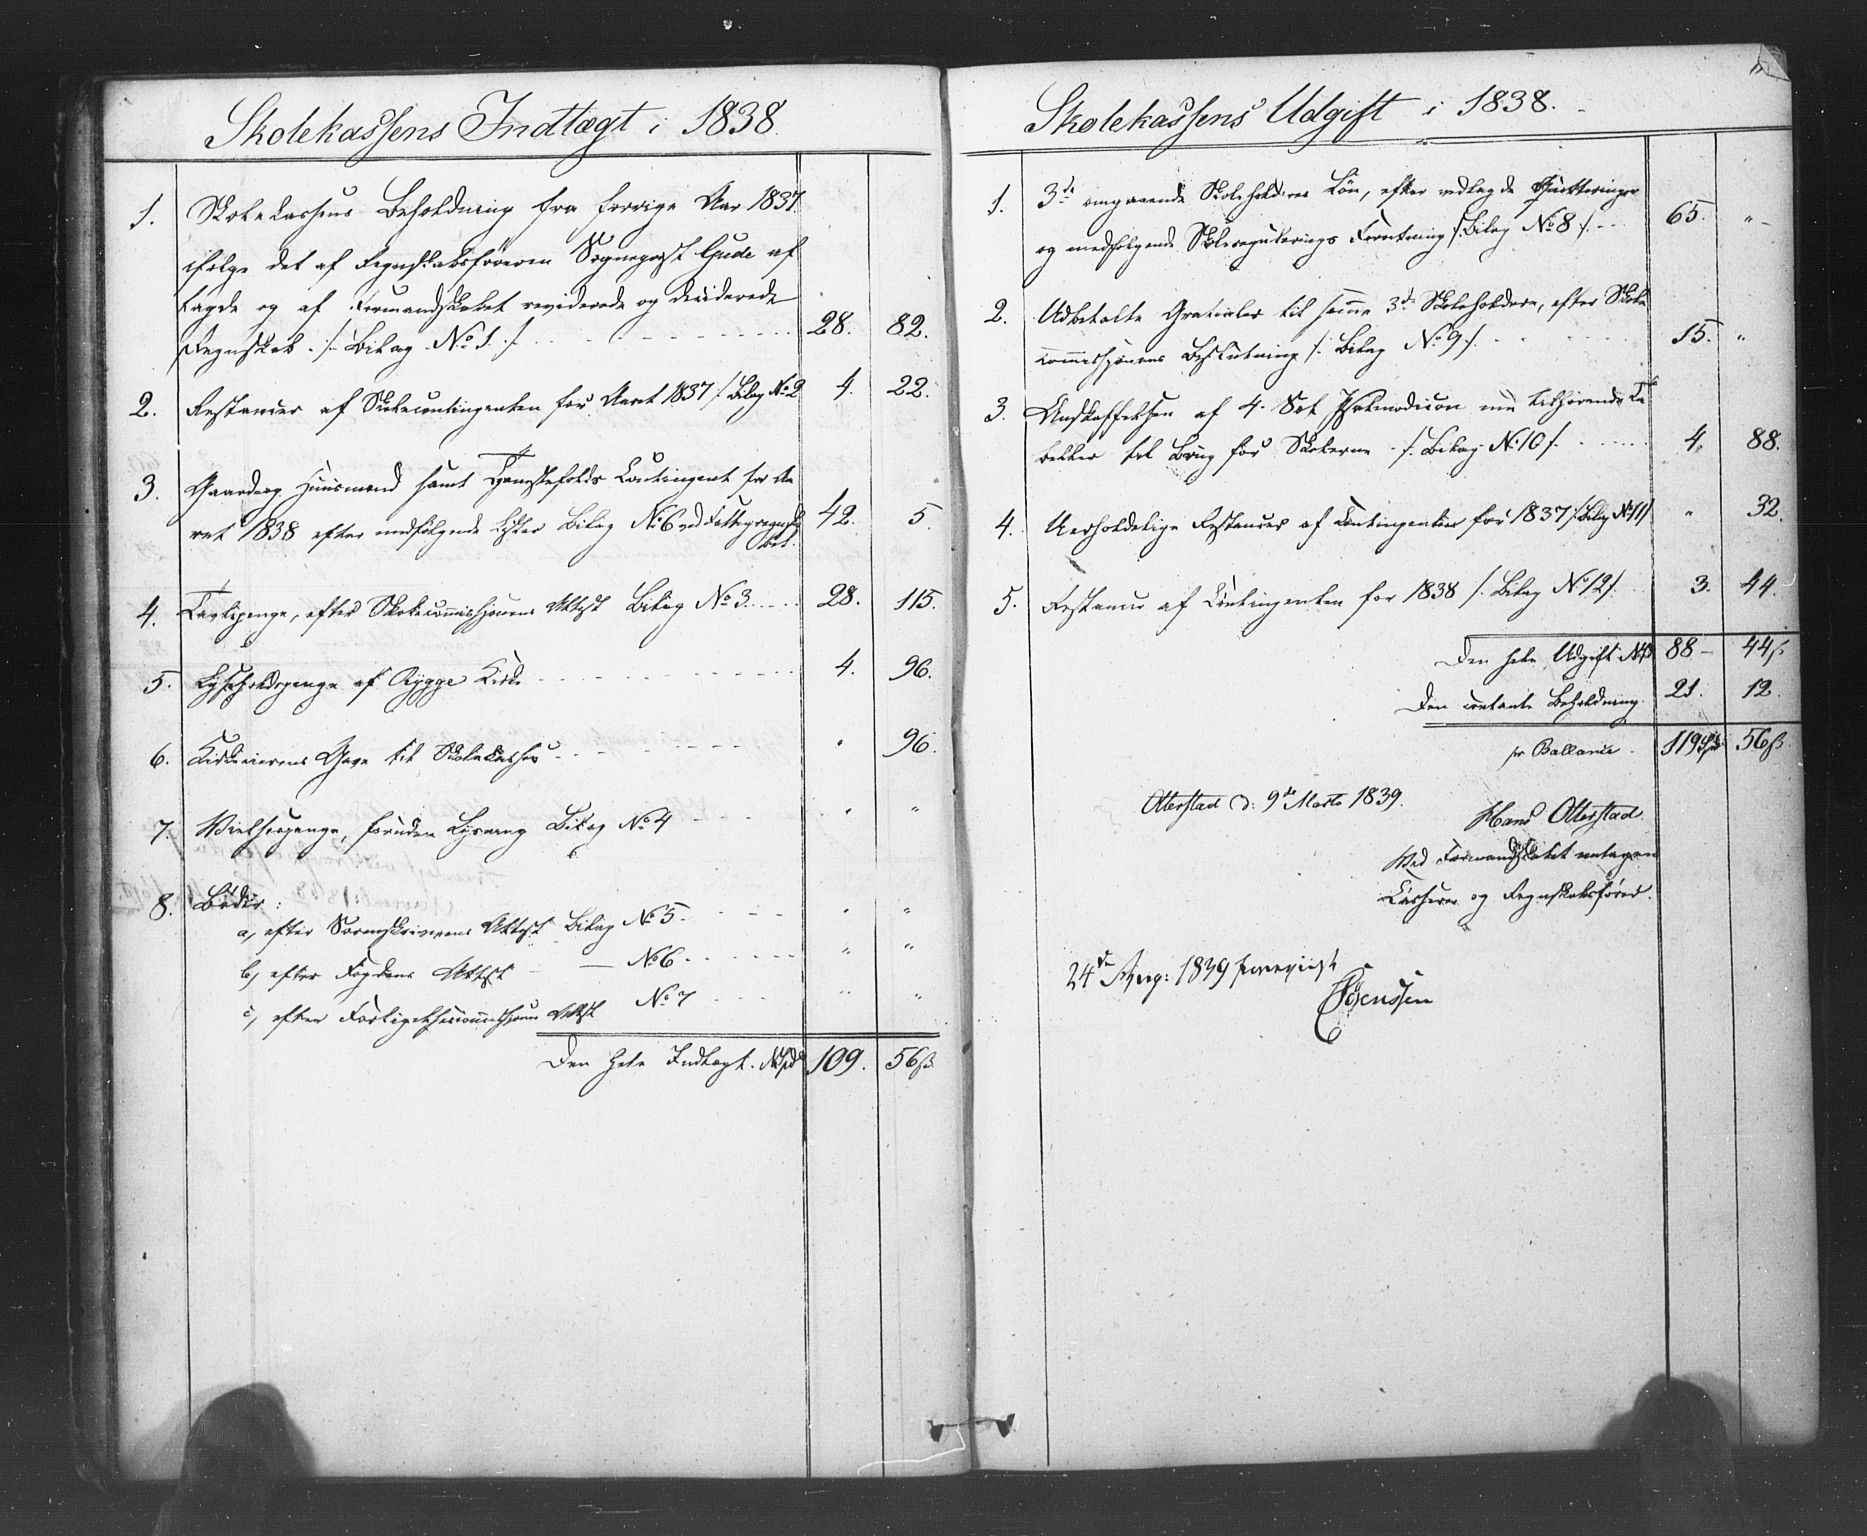 Skolekassens Indtægt i 1838.
1. Skolekassens Beholdning fra forrige Aar 1837
ifølge det af Regnskabsføreren Sogneprest Gude af
lagde og af Formandskabet reviderede og deciderede
Regnskab ./. Bilag No 1 ./. 28. 82.
2. Restancer af Skolecontingenten for Aaret 1837 /: Bilag No 2 4. 22.
3. Gaard og Huusmænd samt Tjenestefolks Contingent for Aa
ret 1838 efter medfølgende Lister Bilag No 6 ved Fattigregnska
bet. 42. 5.
4. Tavlepenge, efter Skolecommissionens Attest Bilag No 3 28. 115.
5. Lysholdspenge af Rygge Kirke 4. 96.
6. Kirkeeierens Gave til Skolekassen " 96.
7. Vielsespenge, foruden Lysning Bilag No 4 " "
8. Bøder:
a, efter Sorenskriverens Attest Bilag No 5. " "
b, efter Fogdens Attest — No 6 " "
c, efter Forligelsescommissionens Attest No 7 " "
Den hele Indtægt. Npd 109. 56ß.
Skolekassens Udgift i 1838.
1. 3de omgaaende Skoleholderes Løn, efter vedlagde Quitteringer
og medfølgende Skoleregulerings Forretning /: Bilag No 8 ./. 65. "
2. Udbetalte Gratialer til samme 3de Skoleholdere, efter Skole
commissionens Beslutning /. Bilag No 9 ./. 15. "
3. Anskaffelsen af 4. Sæt Psalmodicon med tilhørende Ta
beller til Brug for Skolerne ./. Bilag No 10 /. 4. 88.
4. Uerholdelige Restancer af Contingenten for 1837 /: Bilag No 11/ " 32.
5. Restancer af Contingenten for 1838 /. Bilag No 12/. 3. 44.
Den hele Udgift Npd 88 – 44ß.
Den contante Beholdning. 21. 12.
pr Ballance. 119 Spd 56ß.
Otterstad d: 9de Marts 1839.
Hans Otterstad
Ved Formandskabet antagen
Casserer og Regnskabsfører.
24de 1839